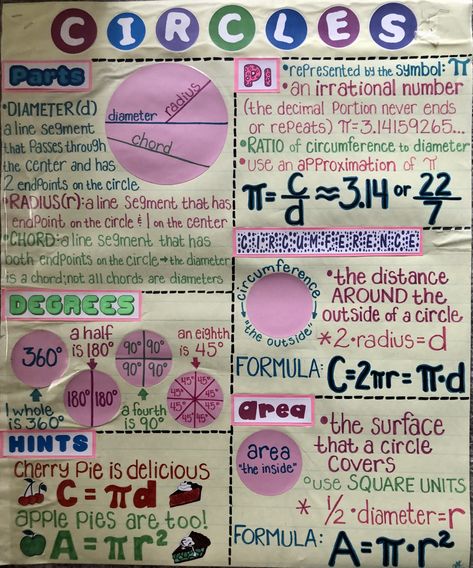 CIRCLES
Parts
•DIAMETER(d)
a line segment
that passes through
the center and has
2 endpoints on the circle
•RADIUS(r): a line segment that has
endpoint on the circle & 1 on the center
•CHORD: a line segment that has
both endpoints on the circle → the diameter
is a chord; not all chords are diameters
diameter
radius
chord
Pi
•represented by the symbol: π
•an irrational number
(the decimal portion never ends
or repeats) π=3.14159265...
•RATIO of circumference to diameter
•use an approximation of π
π = C/d ≈ 3.14 or 22/7
CIRCUMFERENCE
circumference
"the outside"
•the distance
AROUND the
outside of a circle
*2•radius=d
FORMULA: C=2πr=π•d
DEGREES
360°
1 whole
is 360°
a half
is 180°
180° 180°
90° 90°
90° 90°
a fourth
is 90°
an eighth
is 45°
45° 45°
45° 45°
45° 45°
45° 45°
HINTS
Cherry Pie is delicious
C = πd
apple pies are too!
A = πr²
area
area
"the inside"
•the surface
that a circle
covers
°use SQUARE UNITS
* ½•diameter=r
FORMULA: A=π•r²